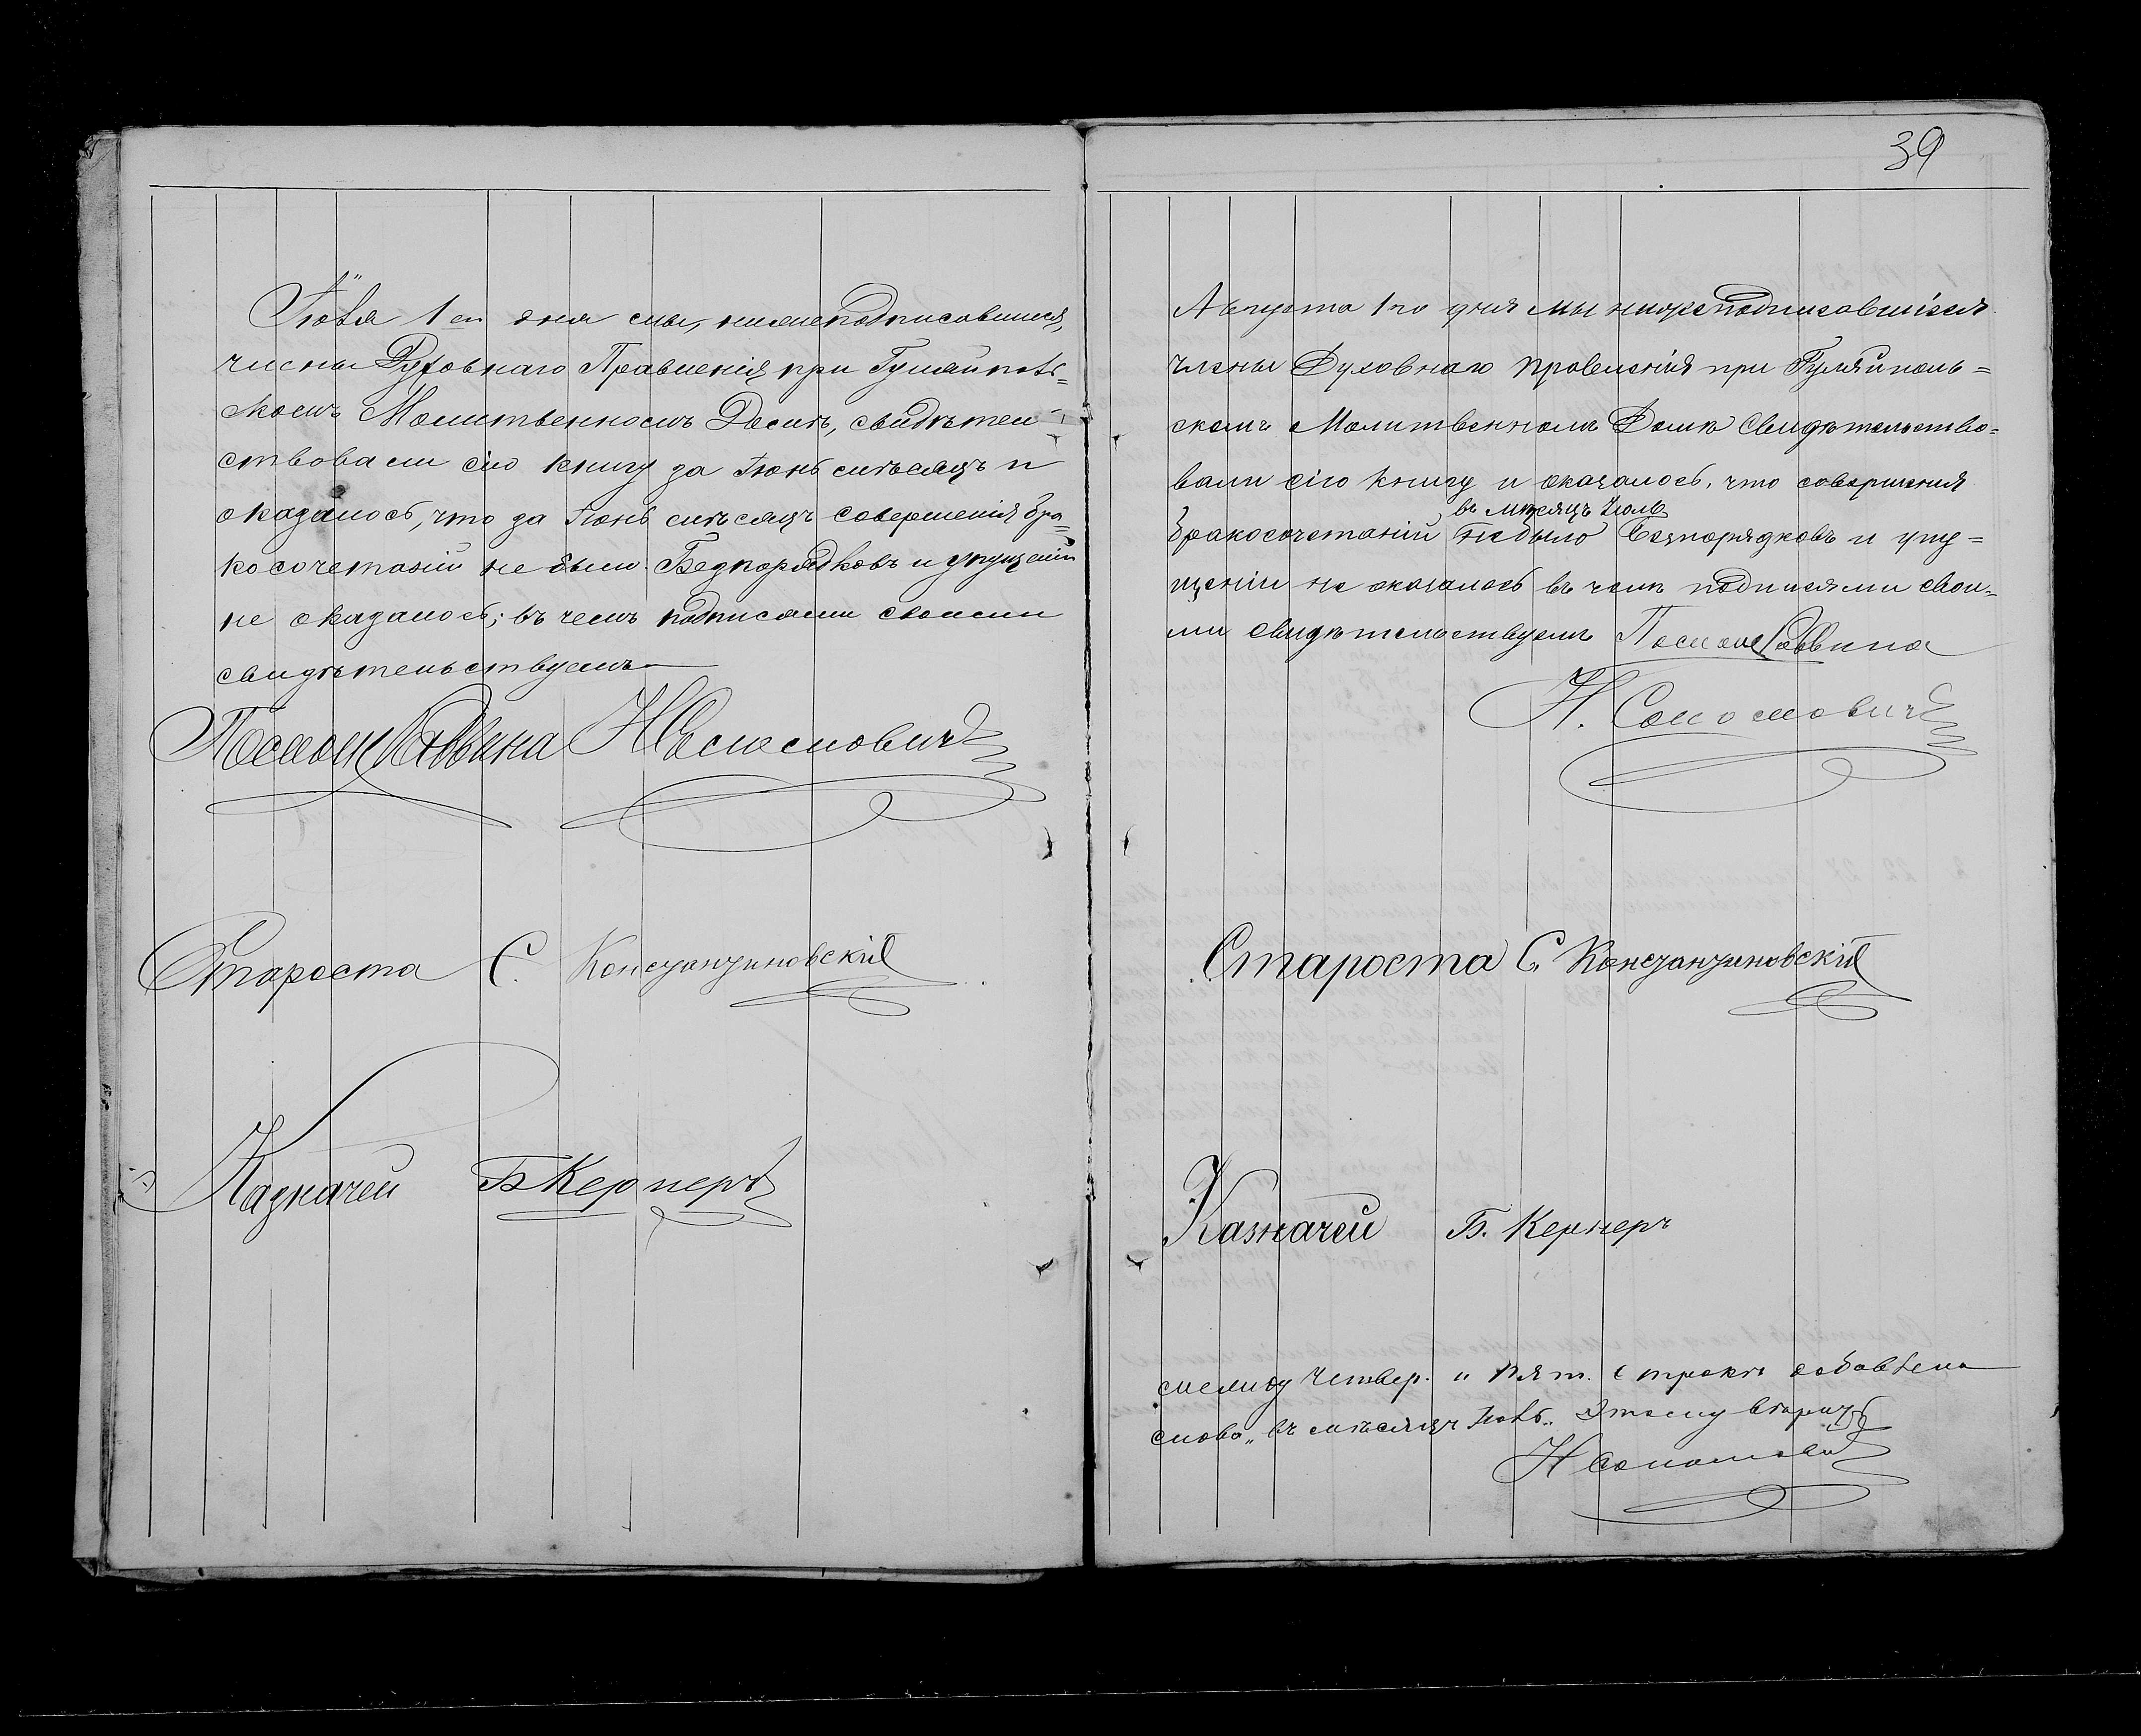 Іюля 1го дня мы, нижеподписавшиеся,
члены Духовнаго Правленія при Гуляйполь=
скомъ Молитвенномъ Домѣ, свидѣтель=
ствовали сію книгу за Іюнь мѣсяцъ и
оказалось, что за Іюнь мѣсяцъ совершенія бра=
косочетаній не было. Безпорядковъ и упущеній
не оказалось; въ чемъ подписями своими
свидѣтельствуемъ
Н Соломоновичъ
Староста С. Константиновскій
Казначей Б Кернеръ
39
Августа 1го дня мы нижеподписавшіеся
члены Духовнаго правленія при Гуляйполь=
скомъ Молитвенномъ Домѣ свидѣтельство=
вали сію книгу и оказалось, что совершенія
въ мѣсяцѣ Іюль
бракосочетаній не было Безпорядковъ и упу=
щеній не оказалось въ чемъ подписями свои=
ми свидѣтельствуемъ
Н. Соломоновичъ
Староста С. Константиновскій
Казначей Б. Кернеръ
между четвер. и пят. строкъ добавлено
слово „въ мѣсяцъ Іюль„ Этому вѣрить